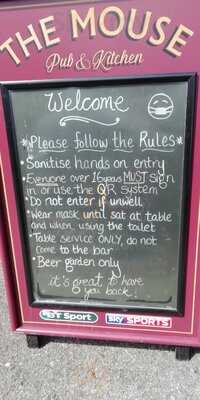 THE MOUSE
Pub & Kitchen
Welcome
*Please follow the Rules*
• Sanitise hands on entry
• Everyone over 16years MUST sign
in or use the QR System
• Do not enter if unwell
• Wear mask until sat at table
and when using the toilet
• Table service ONLY, do not
come to the bar
• Beer garden only
it's great to have
you back!
BT Sport
sky SPORTS